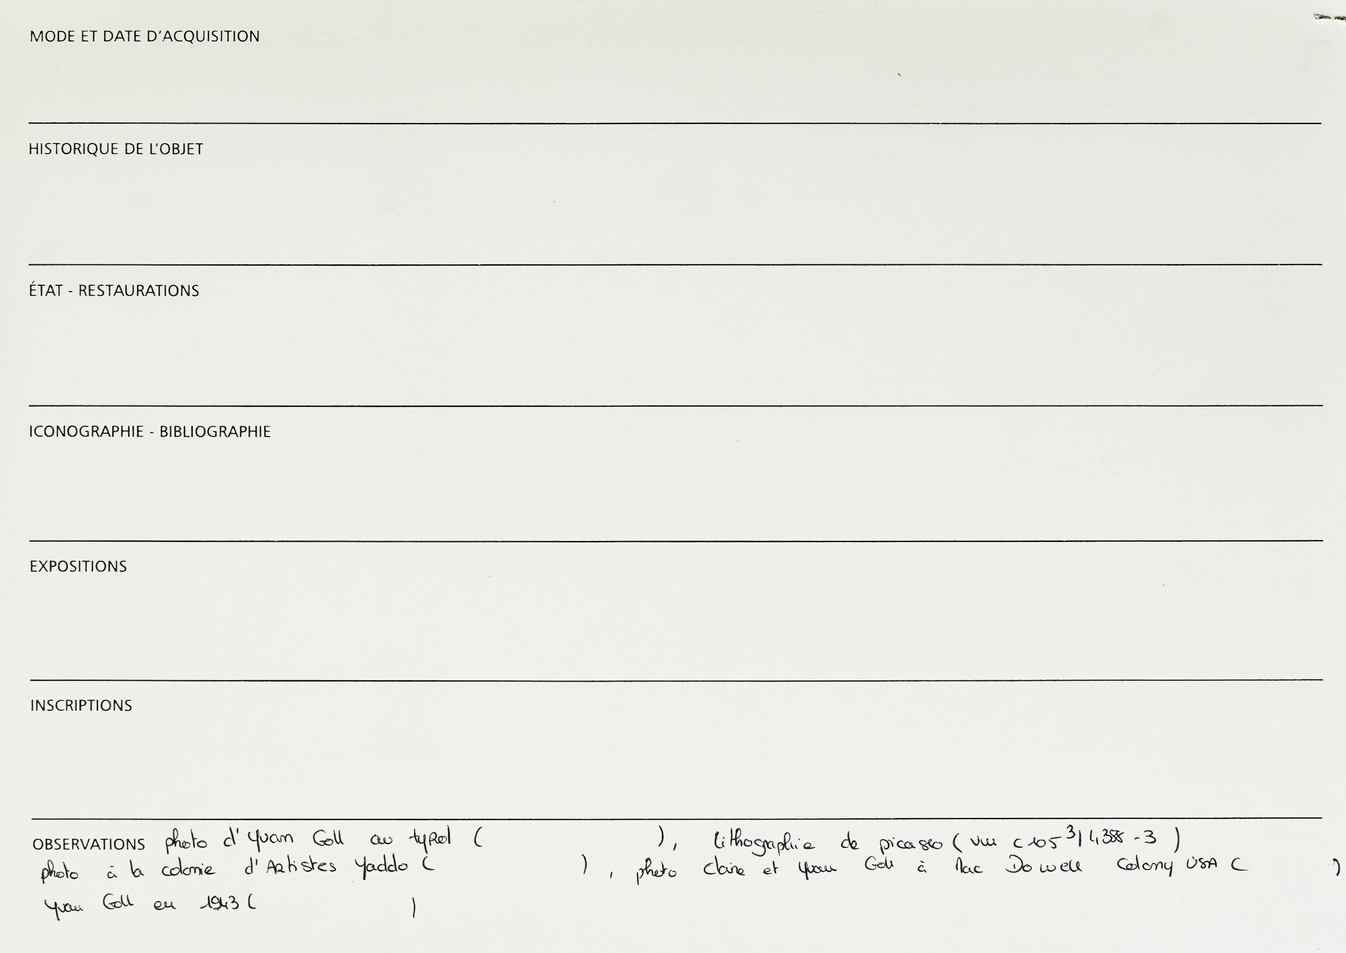 MODE ET DATE D'ACQUISITION
HISTORIQUE DE L'OBJET
ÉTAT - RESTAURATIONS
ICONOGRAPHIE - BIBLIOGRAPHIE
EXPOSITIONS
INSCRIPTIONS
OBSERVATIONS photo d'Yvan Goll au tyrol ( ), lithographie de picasso ( )
photo à la colonie d'Artistes Yaddo ( ), photo Claire et Yvan Goll à Mac Dowell Colony USA ( )
Yvan Goll en 1943 ( )